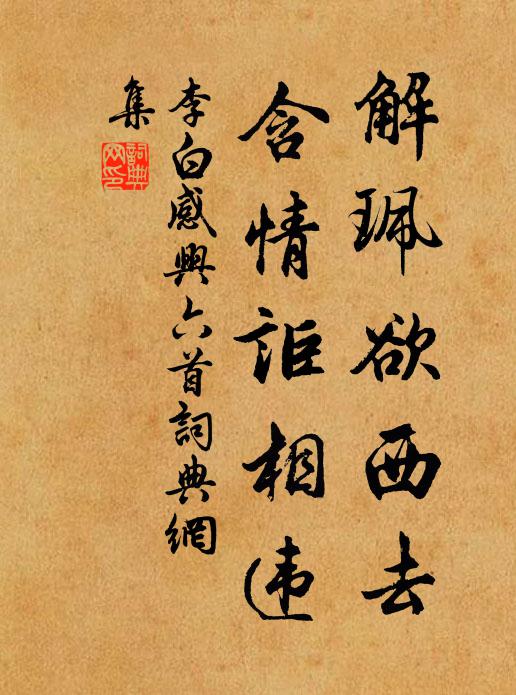 解珮欲西去
含情詎相违
李白感興六首詞典網
集
詞典
网印